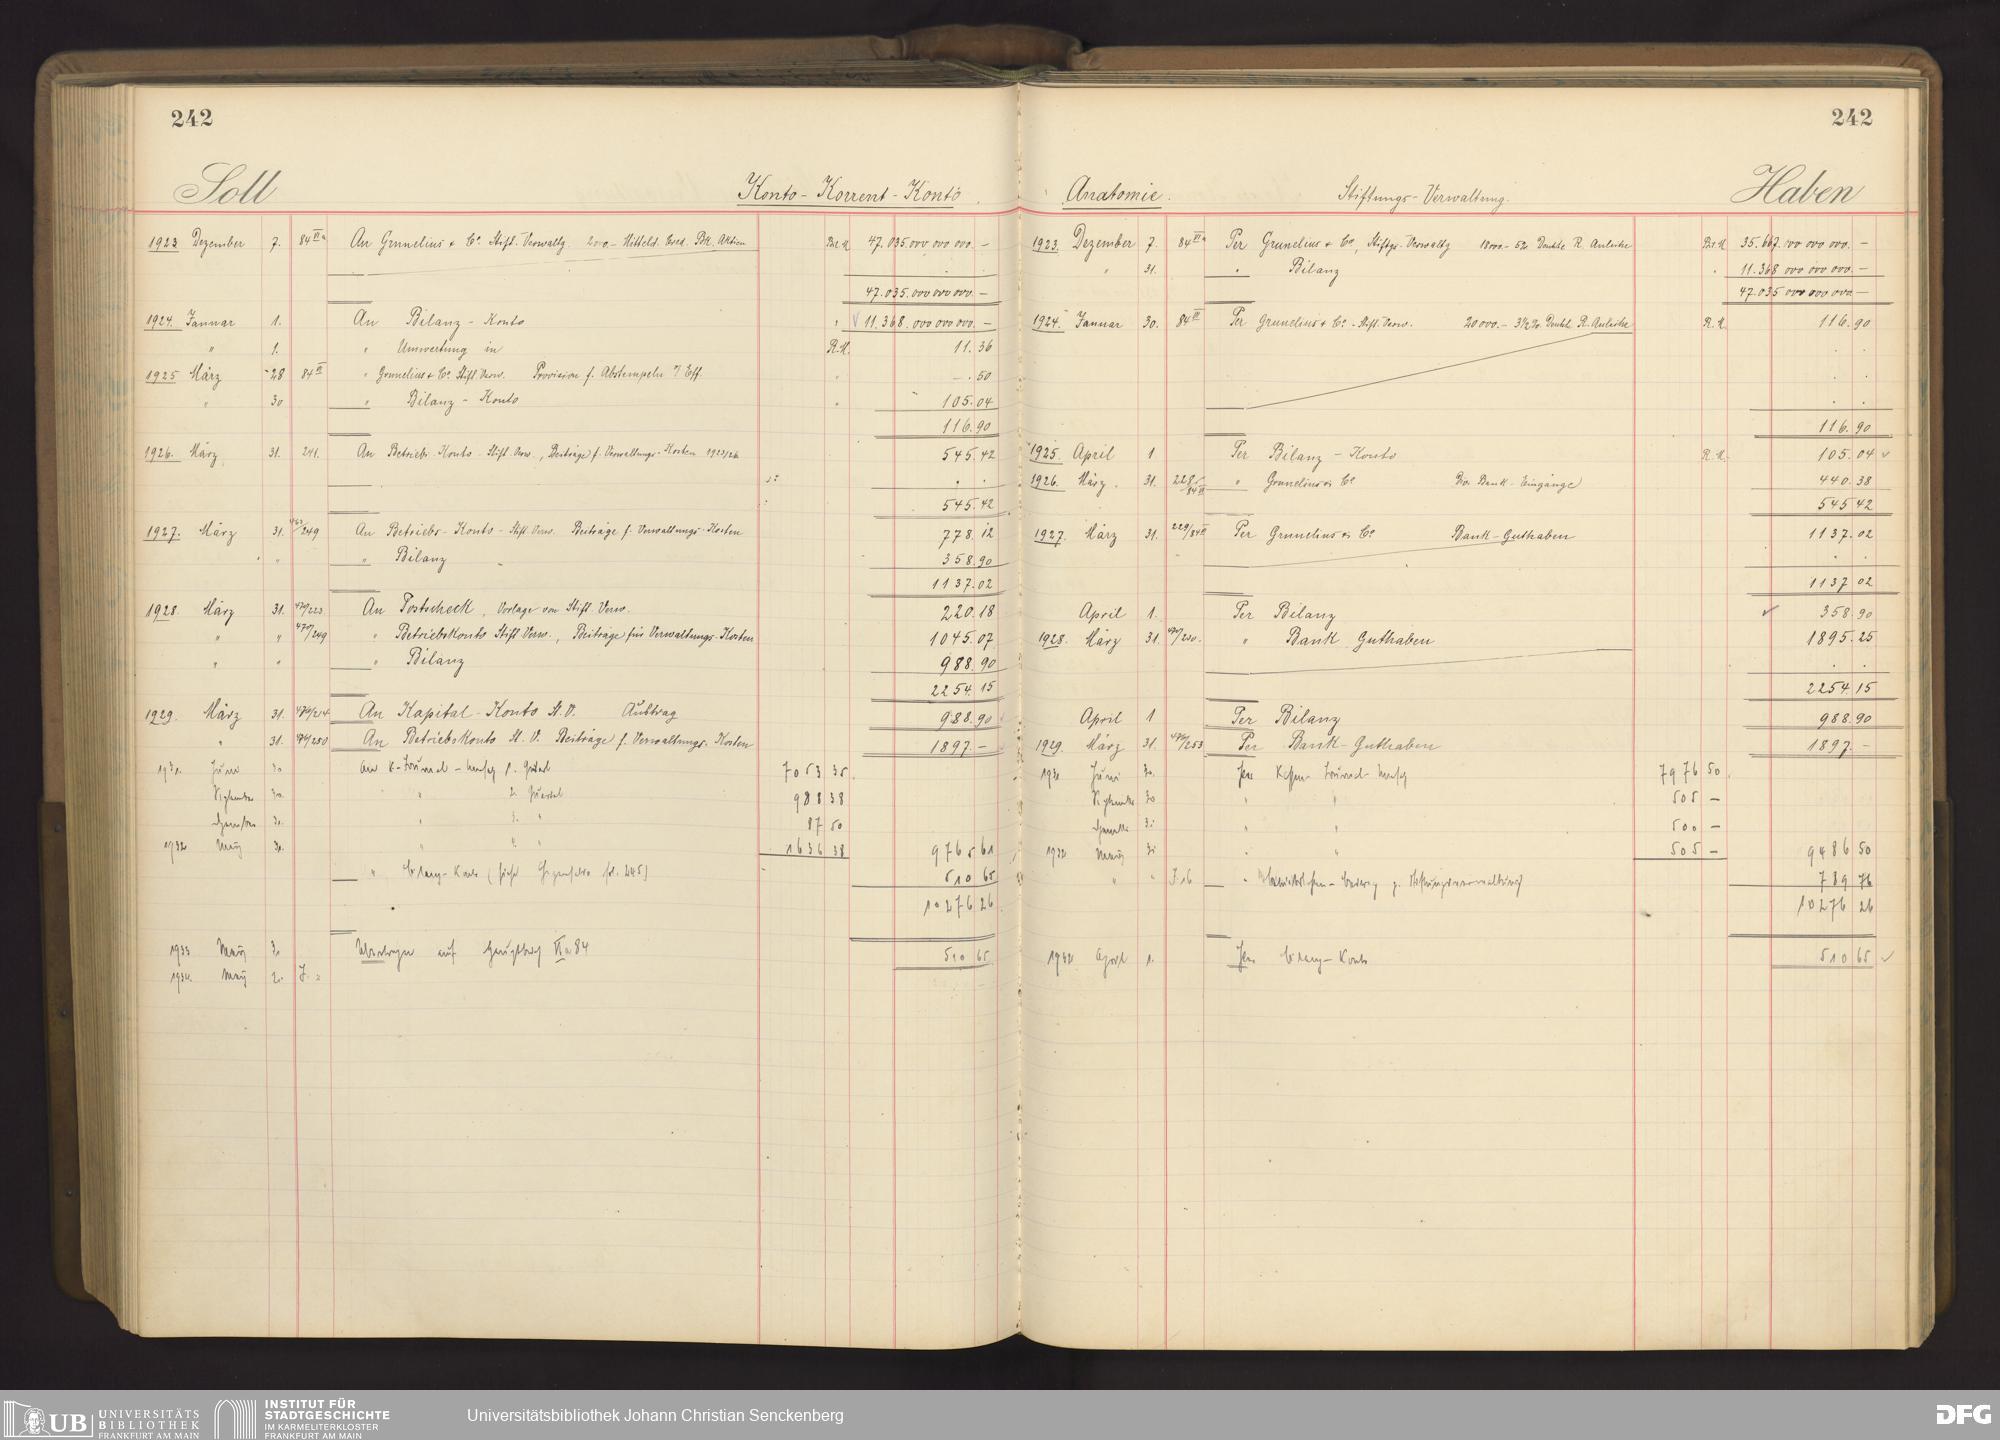 242
Soll
Konto-Korrent-Konto
1923 Dezember 7. 84 VIa An Grunelius & Co. Stift. Verwaltg. 2000.- Mitteld. Cred. Bk. Aktien 47.035.000 000 000.-
47.035.000 000 000.-
1924. Januar 1. An Bilanz-Konto 11.368.000 000 000.-
" 1. " Umwertung in R.M. 11.36
1925 März 28 84 VI " Grunelius & Co. Stift. Verw. Provision f. Abstempeln Eff. -.50
" 30 " Bilanz-Konto " 105.04
116.90
1926. März 31. 241. An Betriebs-Konto-Stift. Verw., Beiträge f. Verwaltungs-Kosten 1925/26 545.42
545.42
1927. März 31. 249 An Betriebs-Konto-Stift. Verw. Beiträge f. Verwaltungs-Kosten 778.12
" " Bilanz 358.90
1137.02
1928. März 31. An Postscheck, Vorlage von Stift. Verw. 220.18
" " 470/249 " Betriebskonto Stift. Verw., Beiträge für Verwaltungs-Kosten 1045.07
" " " Bilanz 988.90
2254.15
1929. März 31. An Kapital-Konto St. V. Aübtrag 988.90
" 31. 250 An Betriebskonto St. V. Beiträge f. Verwaltungs-Kosten 1897.-
1931. Juni 30 7053 35
September 30. " 2. Quartal 988 38
Dezember 31. " 3. " 87 50
1932 März 31. " 1636 38 9765 61
" Bilanz-Konto 510 65
10276 26
1933 März 31 Übertragen auf Hauptbuch VIa 84 510 65
1934. März
242
Anatomie.
Stiftungs-Verwaltung.
Haben
1923. Dezember 7. 84 VIa Per Grunelius & Co., Stiftgs. Verwaltg 18000.- 5% Deutsche R. Anleihe 35.667.000 000 000.-
" 31. " Bilanz " 11.368 000 000 000.-
47.035 000 000 000.-
1924. Januar 30. 84 VI Per Grunelius & Co.-Stift. Verw. 20000.- 3½%. Deutsch. R. Anleihe R.M. 116.90
116.90
1925. April 1 Per Bilanz-Konto R.M. 105.04
1926. März. 31. 228/84 VI " Grunelius & Co Div. Bank-Eingänge 440.38
545 42
1927. März 31. 229/84 VI Per Grunelius & Co Bank-Guthaben 1137.02
1137 02
April 1. Per Bilanz 358.90
1928. März 31. " Bank Guthaben 1895.25
2254.15
April 1 Per Bilanz 988.90
1929. März 31. 253 Per Bank-Guthaben 1897.-
1931 Juni 30. Per 7976 50
September 30 " " 505 -
Dezember 31 " " 500 -
1932 März 31 " " 505 - 9486 50
" " J. 16 " 789 76
10276 26
1932 April 1. Per Bilanz-Konto 510 65
UB UNIVERSITÄTS
BIBLIOTHEK
FRANKFURT AM MAIN
INSTITUT FÜR
STADTGESCHICHTE
IM KARMELITERKLOSTER
FRANKFURT AM MAIN
Universitätsbibliothek Johann Christian Senckenberg
DFG